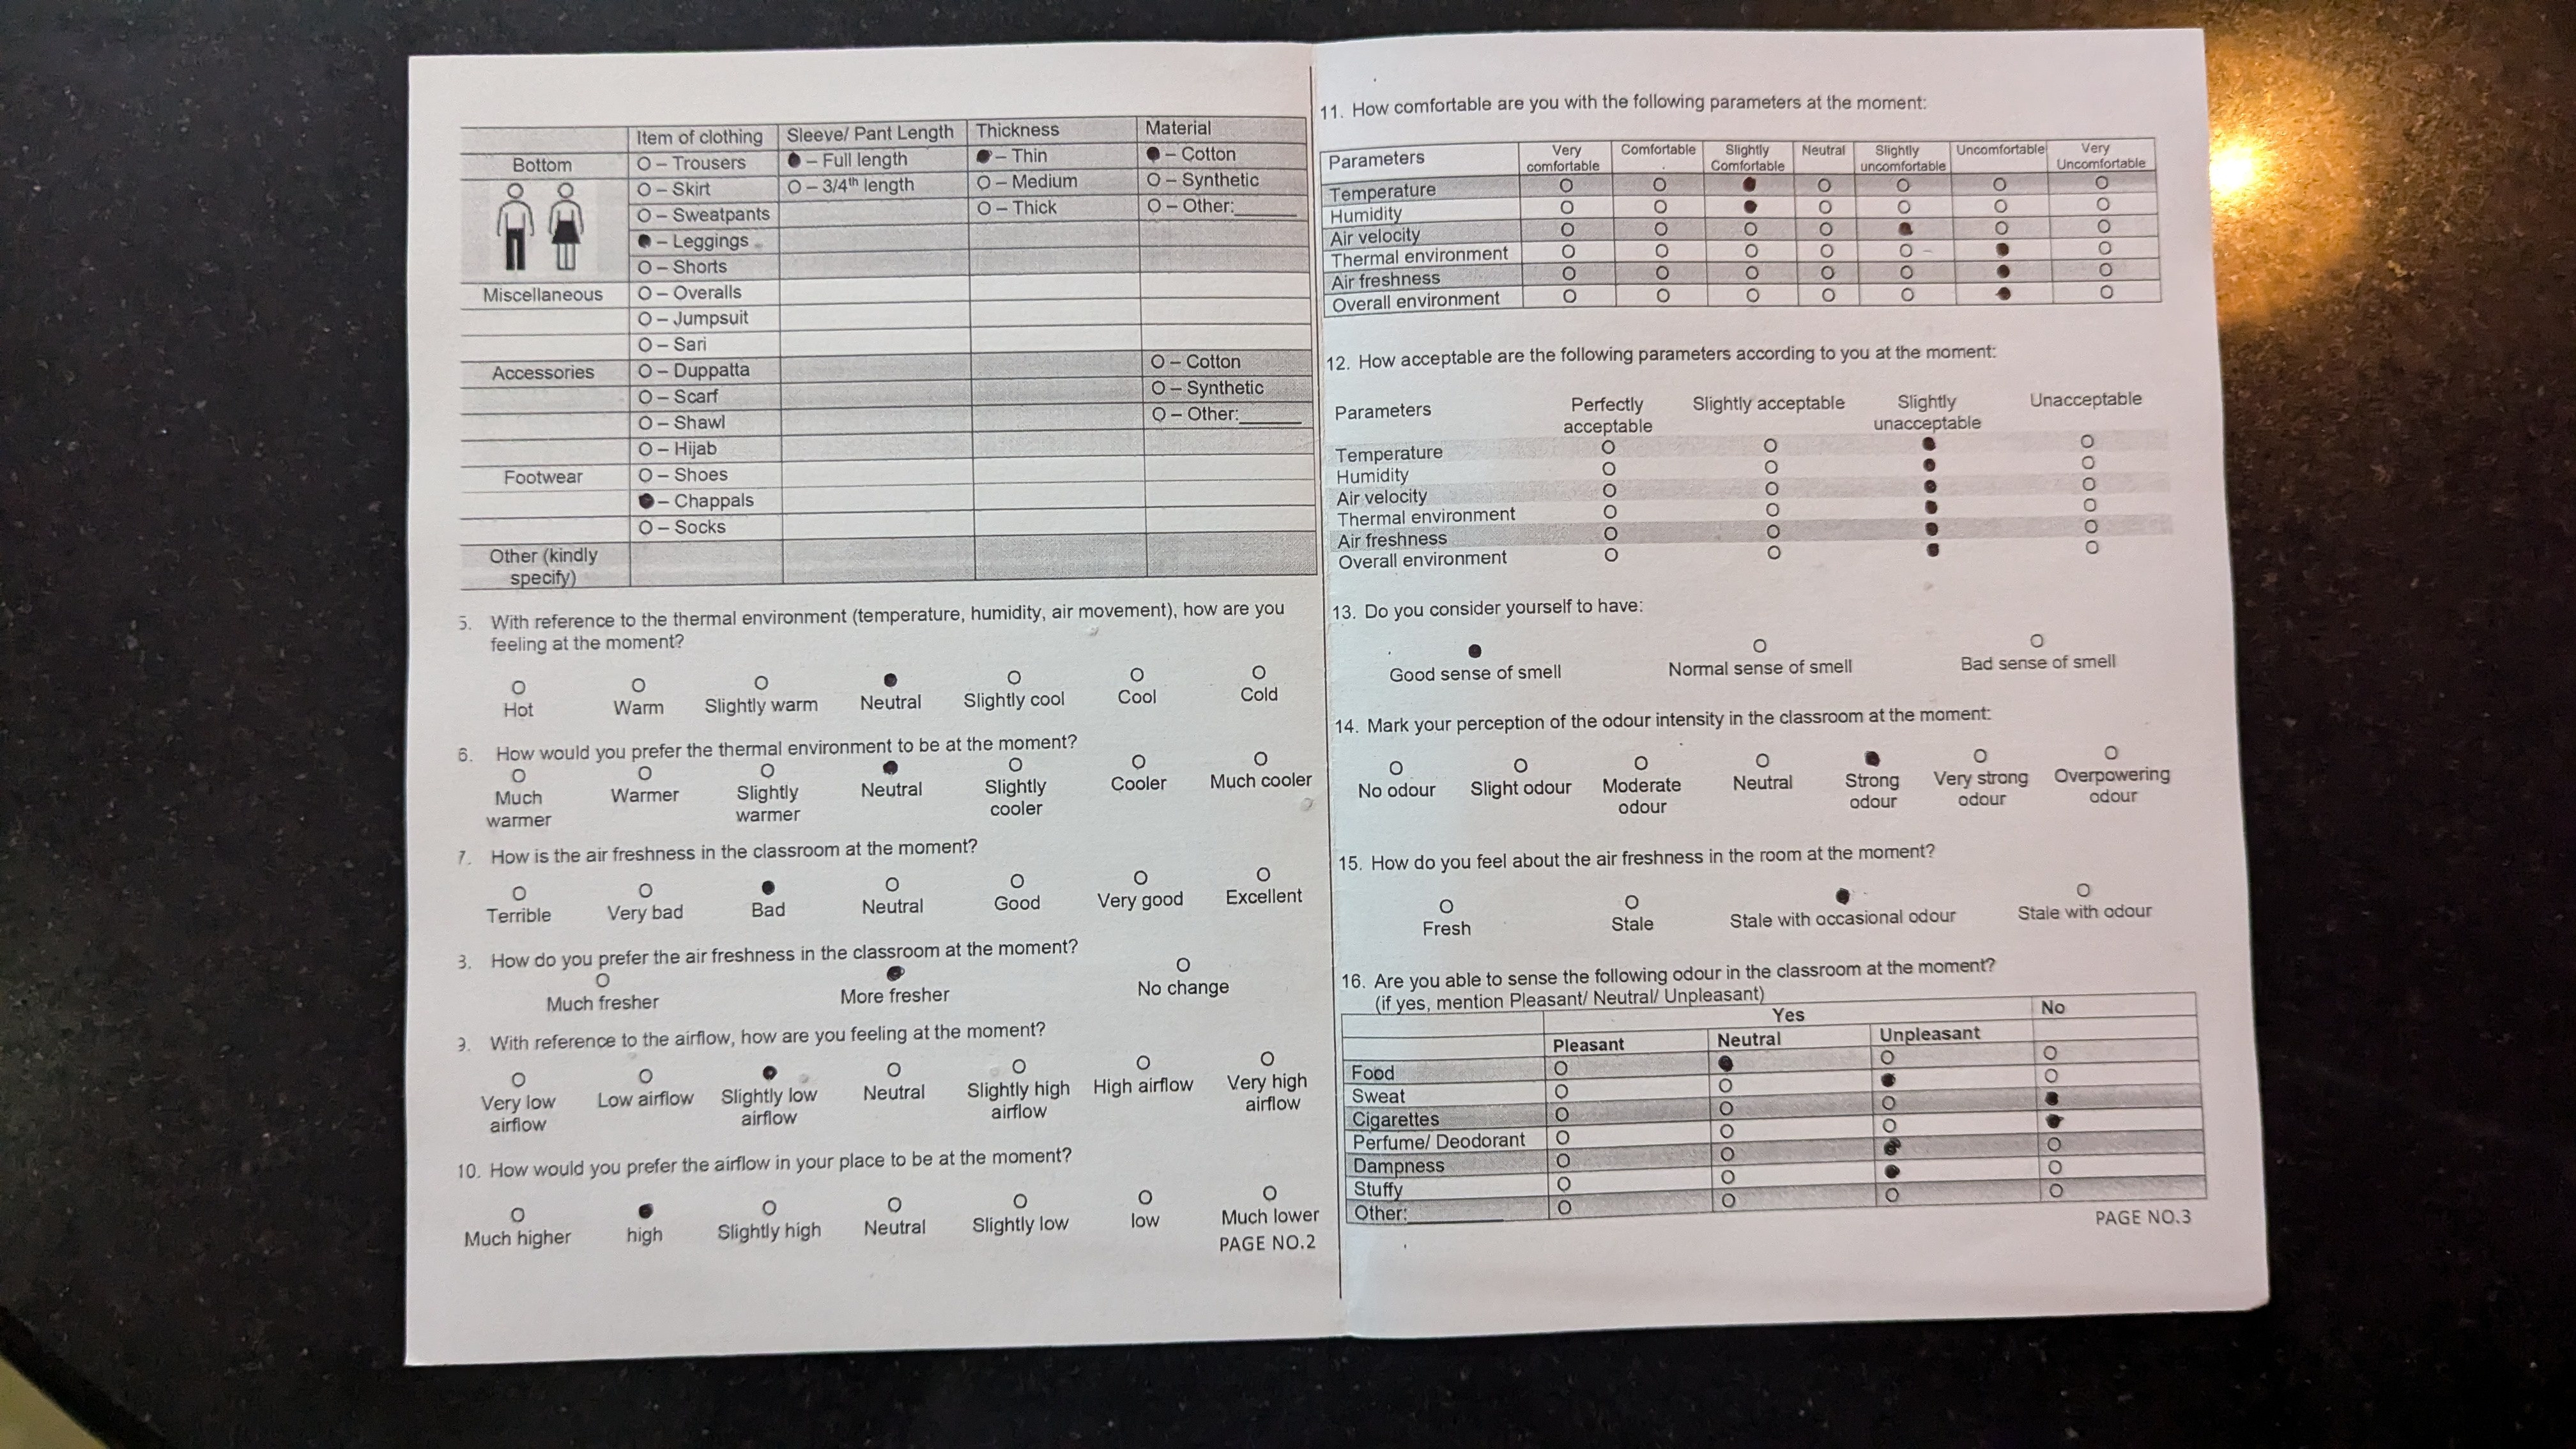 Item of clothing Sleeve/ Pant Length Thickness Material
Bottom O – Trousers ● – Full length ● – Thin ● – Cotton
O – Skirt O – 3/4th length O – Medium O – Synthetic
O – Sweatpants O – Thick O – Other:______
● – Leggings
O – Shorts
Miscellaneous O – Overalls
O – Jumpsuit
O – Sari
Accessories O – Duppatta O – Cotton
O – Scarf O – Synthetic
O – Shawl O – Other:______
O – Hijab
Footwear O – Shoes
● – Chappals
O – Socks
Other (kindly
specify)
5. With reference to the thermal environment (temperature, humidity, air movement), how are you
feeling at the moment?
O O O ● O O O
Hot Warm Slightly warm Neutral Slightly cool Cool Cold
6. How would you prefer the thermal environment to be at the moment?
O O O ● O O O
Much Warmer Slightly Neutral Slightly Cooler Much cooler
warmer warmer cooler
7. How is the air freshness in the classroom at the moment?
O O ● O O O O
Terrible Very bad Bad Neutral Good Very good Excellent
3. How do you prefer the air freshness in the classroom at the moment?
O ● O
Much fresher More fresher No change
9. With reference to the airflow, how are you feeling at the moment?
O O ● O O O O
Very low Low airflow Slightly low Neutral Slightly high High airflow Very high
airflow airflow airflow airflow
10. How would you prefer the airflow in your place to be at the moment?
O ● O O O O O
Much higher high Slightly high Neutral Slightly low low Much lower
PAGE NO.2
11. How comfortable are you with the following parameters at the moment:
Parameters Very Comfortable Slightly Neutral Slightly Uncomfortable Very
comfortable Comfortable uncomfortable Uncomfortable
Temperature O O ● O O O O
Humidity O O ● O O O O
Air velocity O O O O ● O O
Thermal environment O O O O O ● O
Air freshness O O O O O ● O
Overall environment O O O O O ● O
12. How acceptable are the following parameters according to you at the moment:
Parameters Perfectly Slightly acceptable Slightly Unacceptable
acceptable unacceptable
Temperature O O ● O
Humidity O O ● O
Air velocity O O ● O
Thermal environment O O ● O
Air freshness O O ● O
Overall environment O O ● O
13. Do you consider yourself to have:
● O O
Good sense of smell Normal sense of smell Bad sense of smell
14. Mark your perception of the odour intensity in the classroom at the moment:
O O O O ● O O
No odour Slight odour Moderate Neutral Strong Very strong Overpowering
odour odour odour odour
15. How do you feel about the air freshness in the room at the moment?
O O ● O
Fresh Stale Stale with occasional odour Stale with odour
16. Are you able to sense the following odour in the classroom at the moment?
(if yes, mention Pleasant/ Neutral/ Unpleasant)
Yes No
Pleasant Neutral Unpleasant
Food O ● O O
Sweat O O ● O
Cigarettes O O O ●
Perfume/ Deodorant O O O ●
Dampness O O ● O
Stuffy O O ● O
Other:__________ O O O O
PAGE NO.3